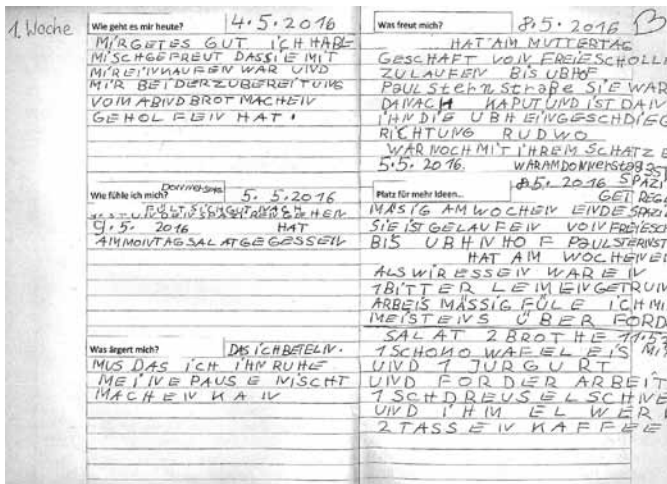 1. Woche
Wie geht es mir heute? 4.5.2016
MIR GETES GUT ICH HABE
MISCH GEFREUT DASSIE MIT
MIR EINKAUFEN WAR UND
MIR BEI DER ZUBEREITUNG
VOM ABND BROT MACHEN
GEHOLFEIN HAT.
Wie fühle ich mich? DONNERSTAG 5.5.2016
FÜLT SICH GUT NACH
STUNDEN SPAZIREN GEHEN
9.5. 2016 HAT
AM MONTAG SALAT GEGESSEN
Was ärgert mich? DAS ICH BETELN.
MUS DAS ICH IHN RUHE
MEINE PAUSE NISCHT
MACHEN KAN
Was freut mich? 8.5.2016
HAT AM MUTTERTAG
GESCHAFT VON FREIESCHOLL
ZULAUFEN BIS UBHOF
PAUL Stern Straße SIE WAR
DANACH KAPUT UND IST DAN
IHN DIE UBH EINGESCHDIEG
RICHTUNG RUDWO
WAR NOCH MIT IHREM SCHATZ
5.5. 2016. WAR AM DONNERStag
Platz für mehr Ideen... 8.5. 2016 SPAZI
GET REG
MÄSIG AM WOCHENENDE SPAZI
SIE IST GELAUFEN VON FREIESCH
BIS UBHNHOF PAULSTERNST
HAT AM WOCHENEN
ALS WIR ESSEN WAREN
1 BITTER LEMEN GETRUN
ARBEIS MÄSSIG FÜLE ICH MI
MEISTENS ÜBER FORD
SALAT 2 BROTHE
1 SCHOKO WAFEL EIS MI
UND 1 JURGURT
UND FOR DER ARBEIT
1 SCHDREUSELSCHNE
UND IHM EL WER
2 TASSEN KAFFEE